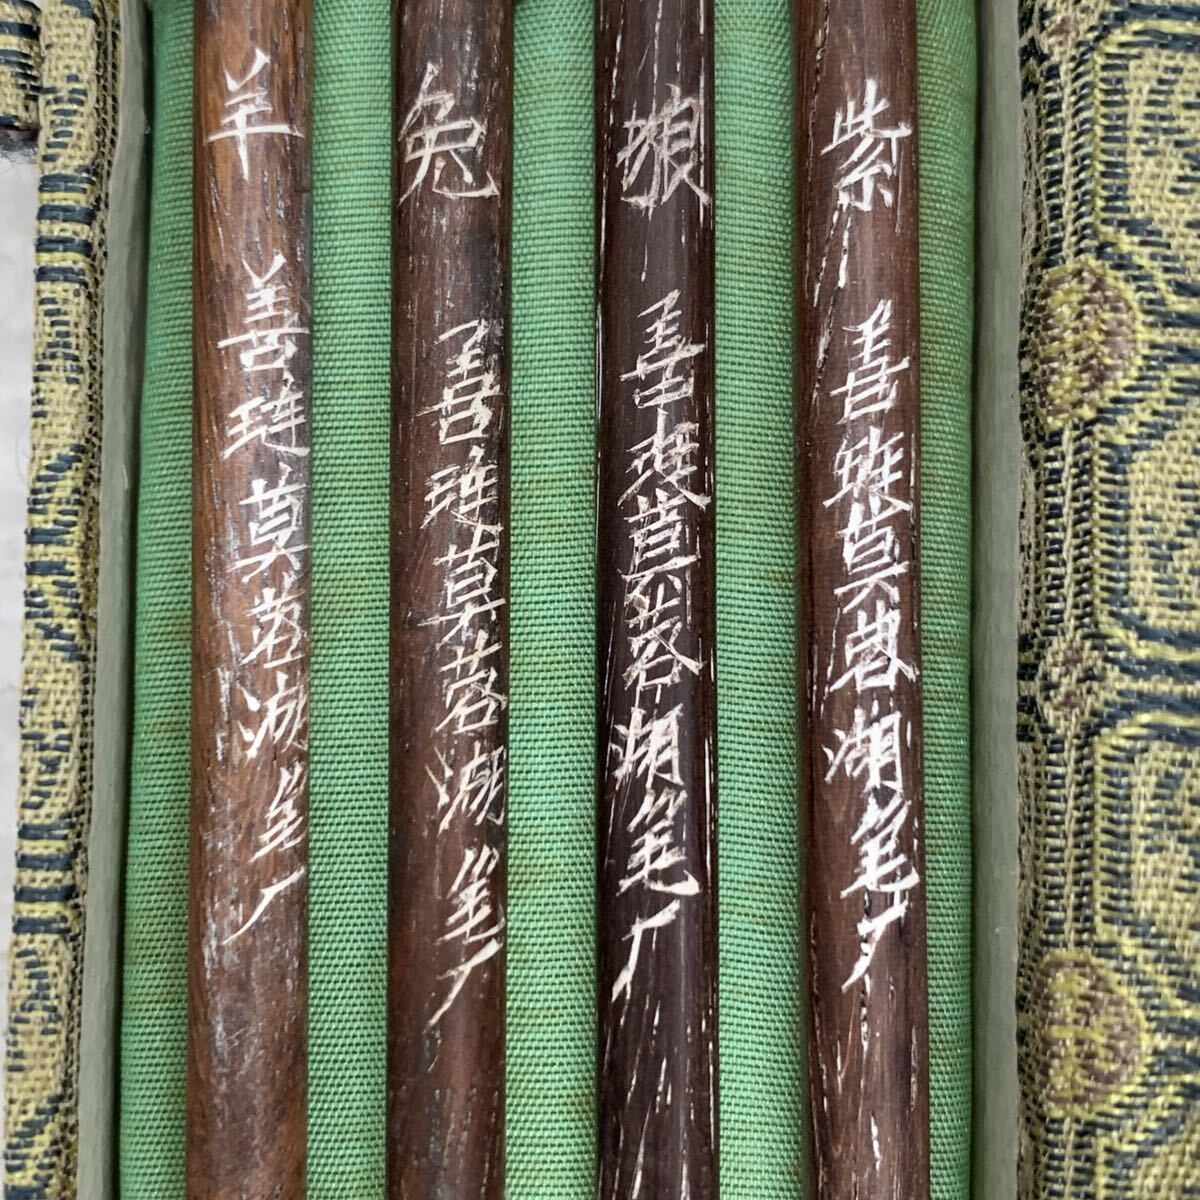 羊 善琏莫蓉湖笔厂
兔 善琏莫蓉湖笔厂
狼 善琏莫蓉湖笔厂
紫 善琏莫蓉湖笔厂